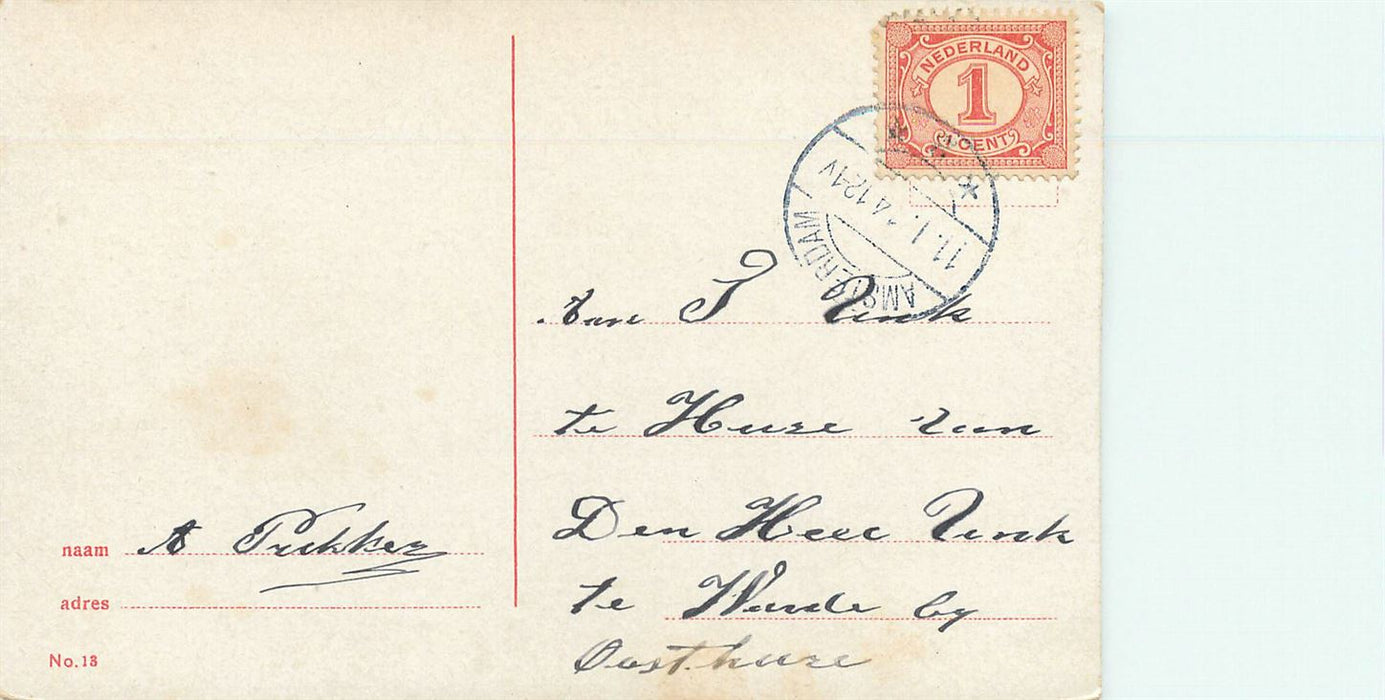 NEDERLAND
1
1 CENT
AMSTERDAM
11.1. 4 12-1V
Aan J Vink
te Huize van
Den Heer Vink
te Warde by
Oosthuize
naam A Prikker
adres
No. 13